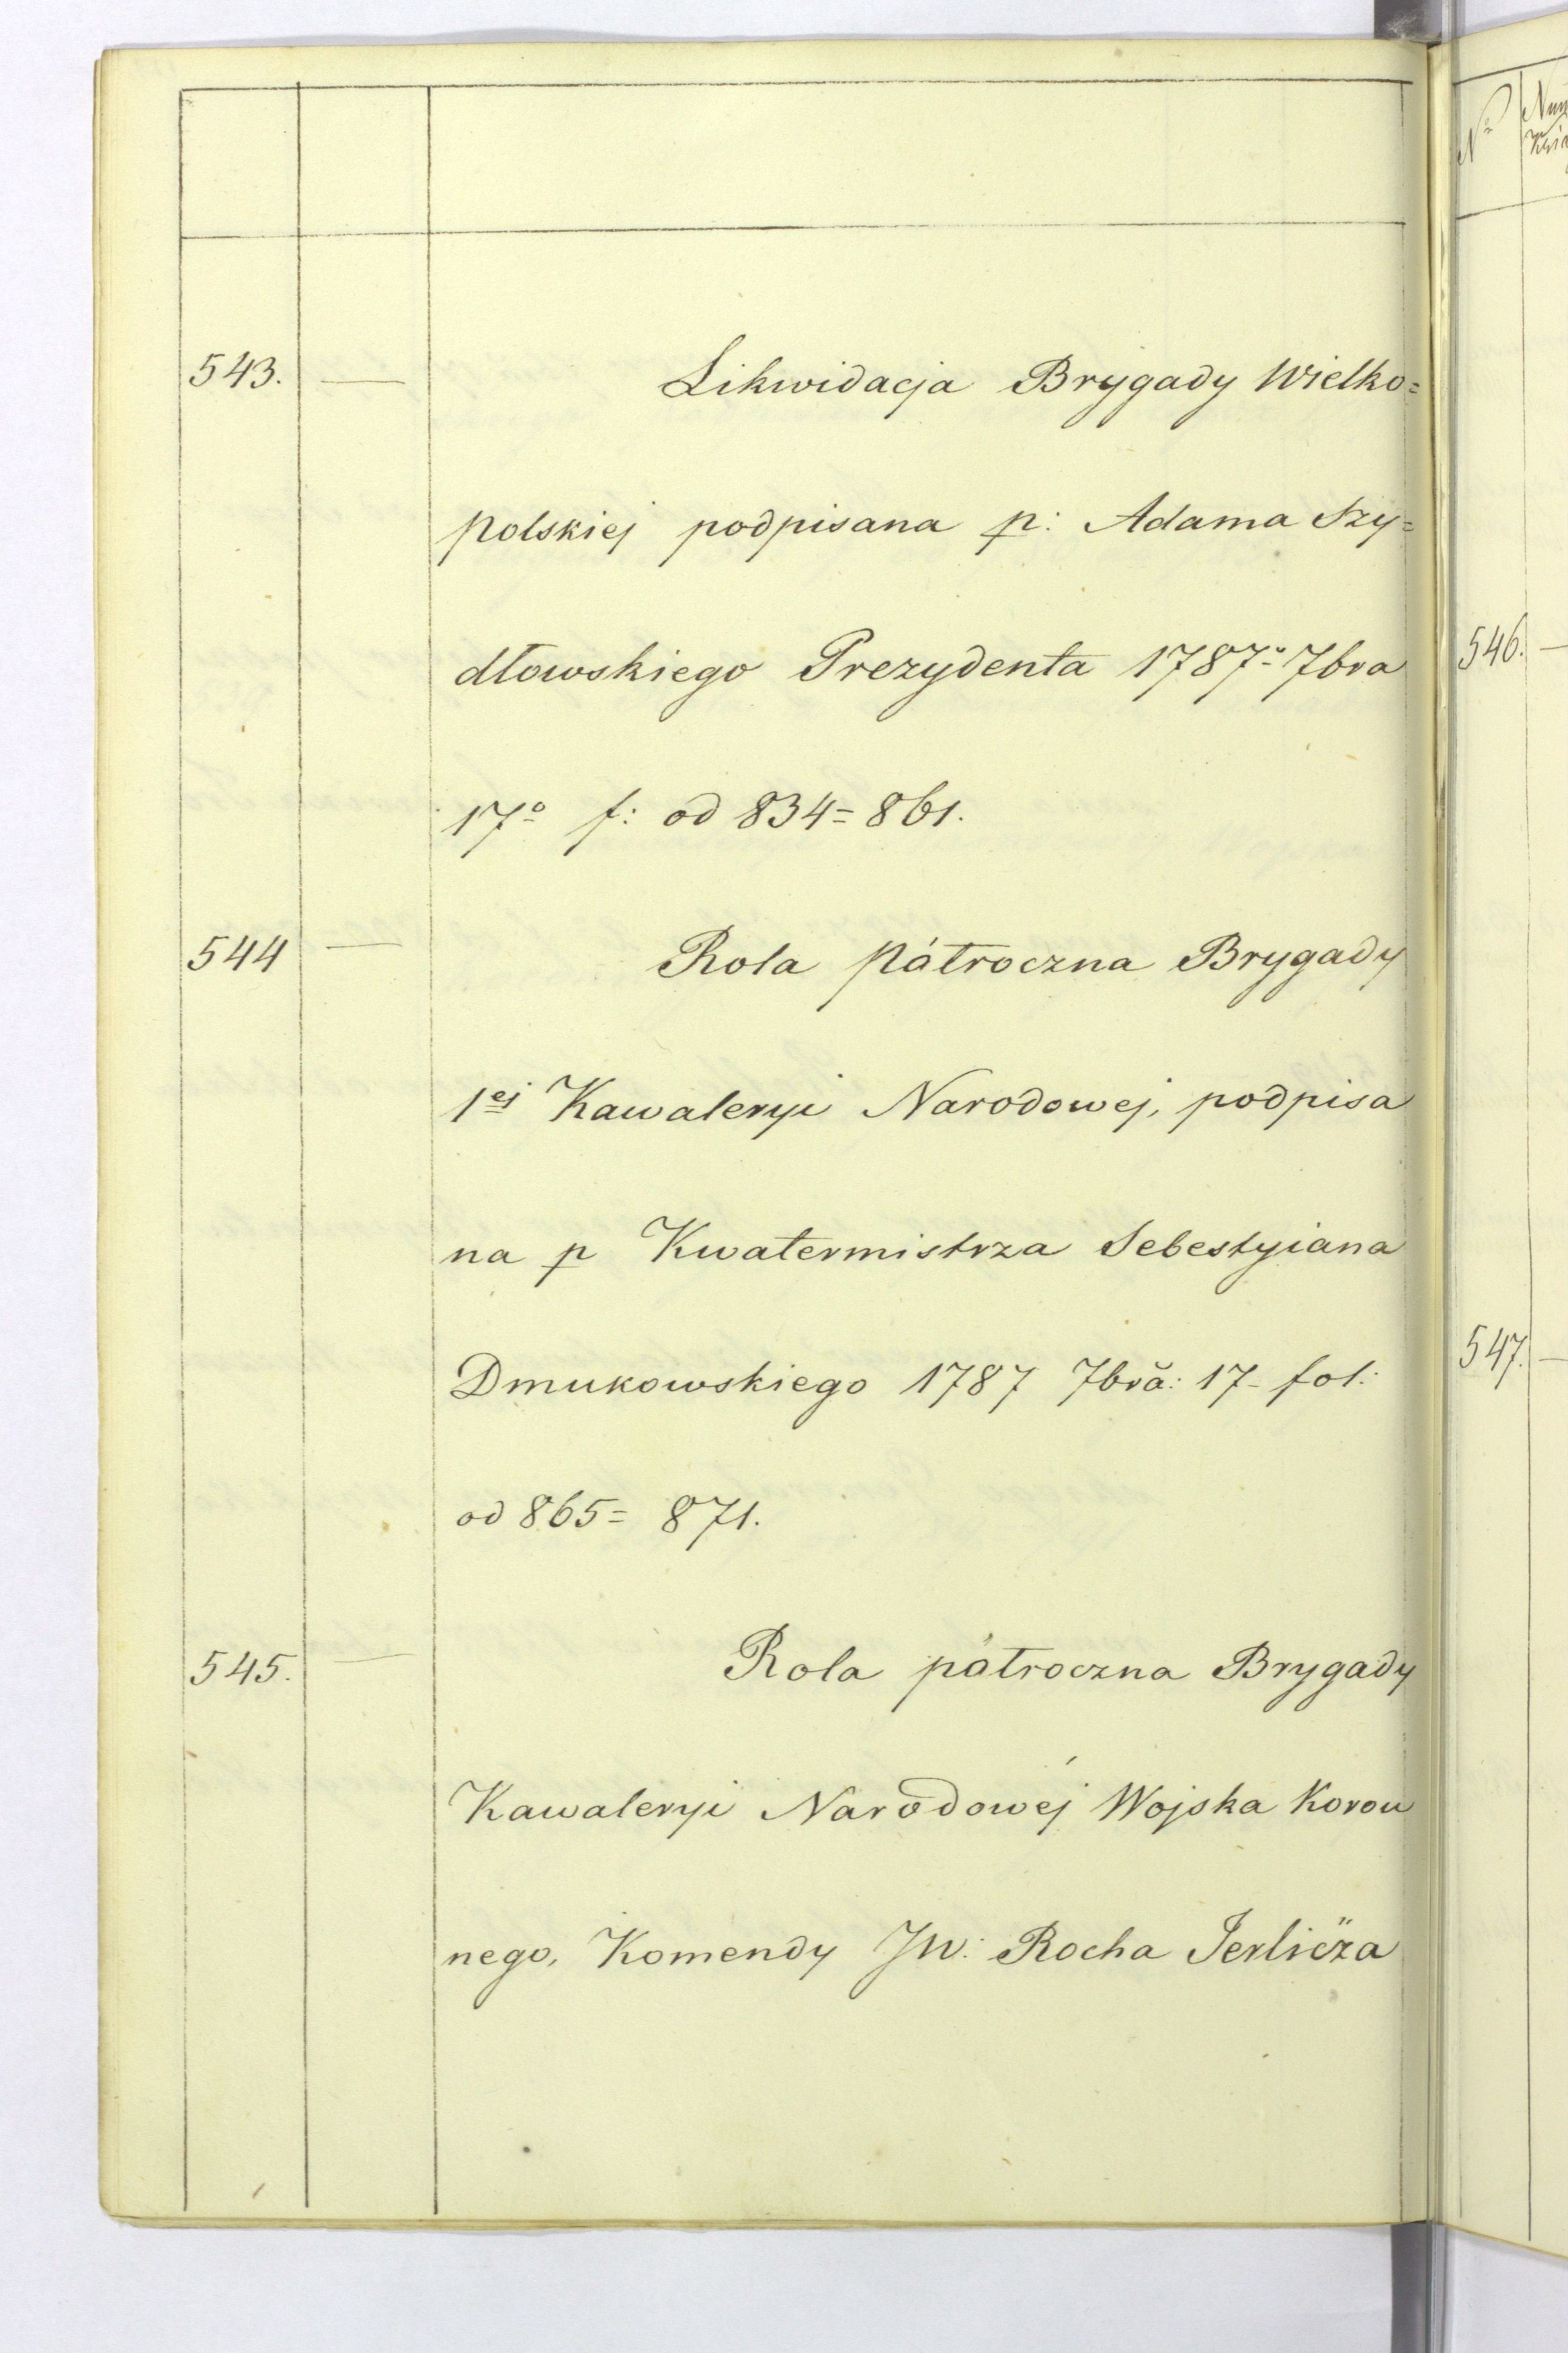 543. — Likwidacja Brygady Wielko=
polskiej podpisana p: Adama Szy=
dłowskiego Prezydenta 1787º 7bra
17º f: od 834 = 861.
544 — Rola pátroczna Brygady
1ej Kawaleryi Narodowej, podpisa
na p Kwatermistrza Sebestyiana
Dmukowskiego 1787 7bra: 17 - fol:
od 865 = 871.
545. — Rola pátroczna Brygady
Kawaleryi Narodowéj Wojska Koron
nego, Komendy JW: Rocha Jerlicza
Nº
546. —
547. —